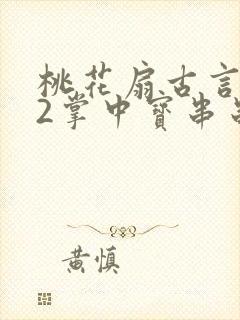 桃花扇古言
2掌中寳串
黄慎